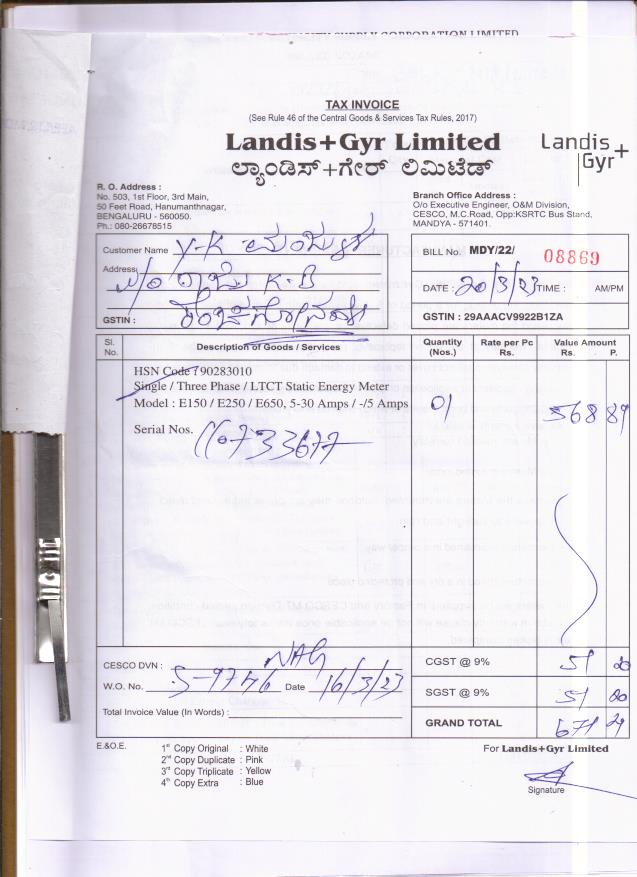 TAX INVOICE
(See Rule 46 of the Central Goods & Services Tax Rules, 2017)
Landis+Gyr Limited
ಲ್ಯಾಂಡಿಸ್+ಗೇರ್ ಲಿಮಿಟೆಡ್
Landis+
Gyr+
R. O. Address :
No. 503, 1st Floor, 3rd Main,
50 Feet Road, Hanumanthnagar,
BENGALURU - 560050.
Ph.: 080-26678515
Branch Office Address :
O/o Executive Engineer, O&M Division,
CESCO, M.C.Road, Opp:KSRTC Bus Stand,
MANDYA - 571401.
Customer Name Y-K ಮಂಜುಳ
Address W/o ರಾಜು K-B
GSTIN :
BILL No. MDY/22/ 08869
DATE : 20/3/23 TIME : AM/PM
GSTIN : 29AAACV9922B1ZA
Sl. No. Description of Goods / Services Quantity (Nos.) Rate per Pc Rs. Value Amount Rs. P.
HSN Code : 90283010
Single / Three Phase / LTCT Static Energy Meter
Model : E150 / E250 / E650, 5-30 Amps / -/5 Amps 01 568 89
Serial Nos. 110733677
CESCO DVN : NAG
W.O. No. S-9746 Date 16/3/23
Total Invoice Value (In Words) :
CGST @ 9% 51 20
SGST @ 9% 51 20
GRAND TOTAL 671 29
E.&O.E.
1st Copy Original : White
2nd Copy Duplicate : Pink
3rd Copy Triplicate : Yellow
4th Copy Extra : Blue
For Landis+Gyr Limited
Signature